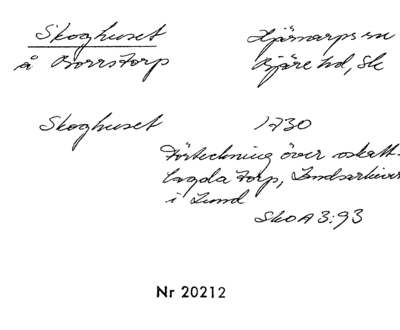 Skoghuset
Hjärnarps sn
å Borrstorp
Bjäre hd, Sk
Skoghuset
1730
Förteckning över oskatt-
lagda torp, Landsarkivet
i Lund
Sko A 3:93
Nr 20212